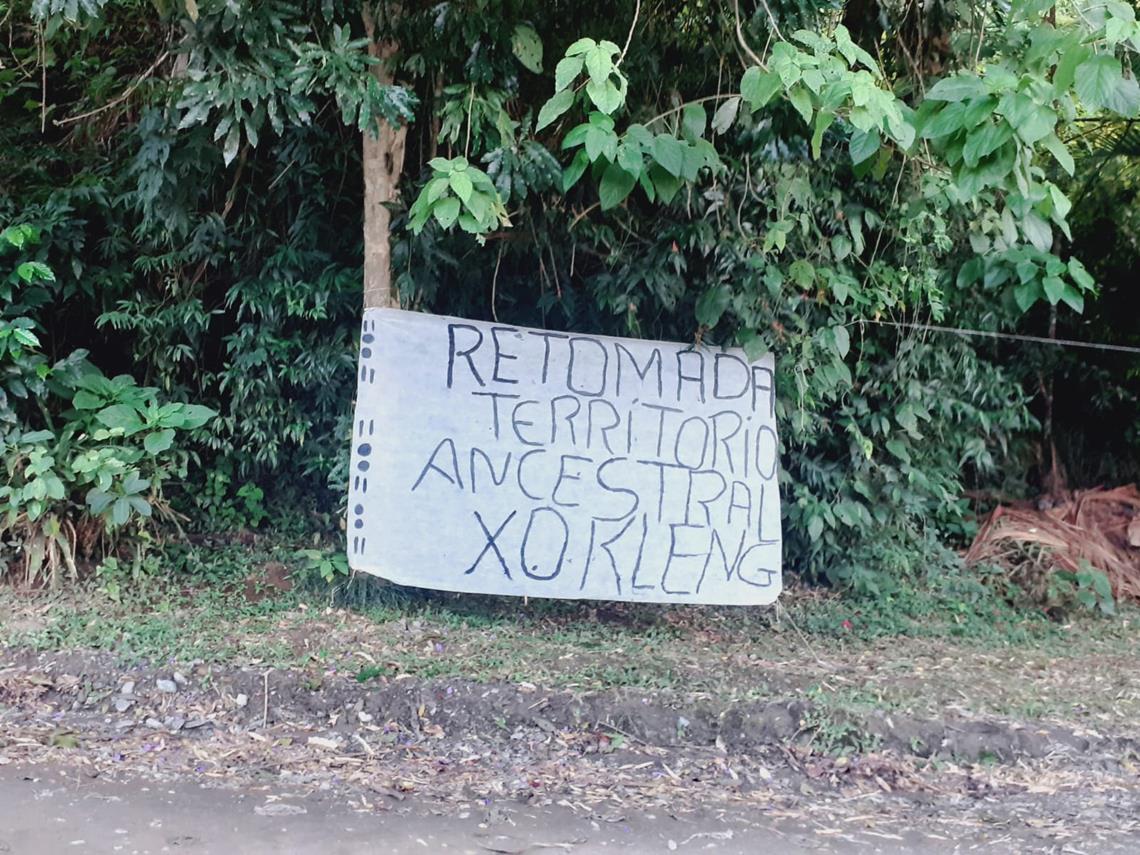 RETOMADA
TERRITORIO
ANCESTRAL
XOKLENG